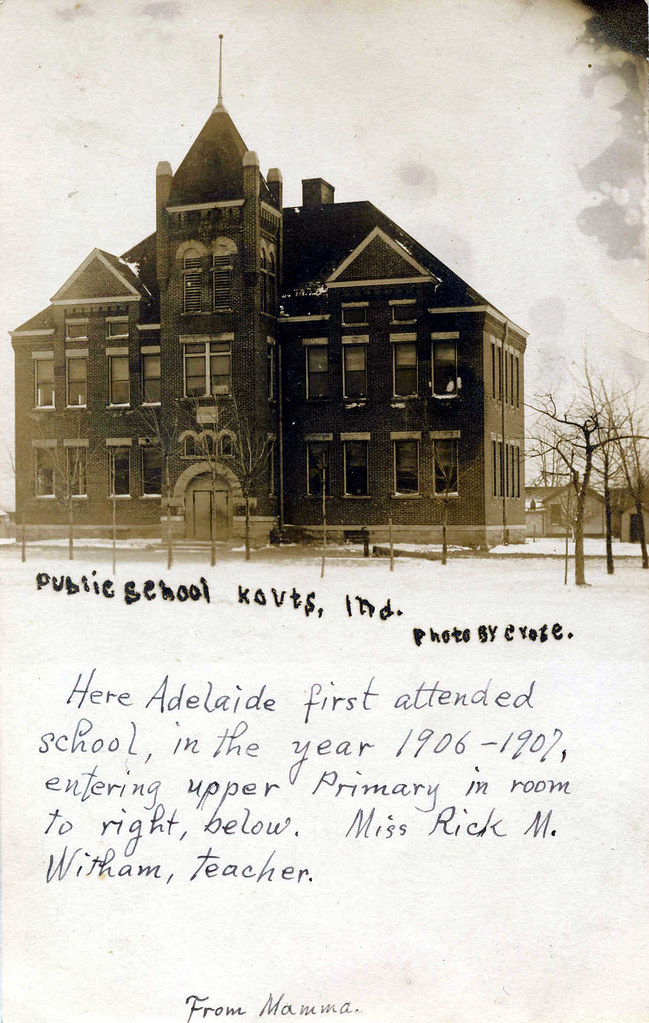 PUBlic School KOVts, Ind.
Photo BY Crose.
Here Adelaide first attended
school, in the year 1906-1907,
entering upper Primary in room
to right, below. Miss Rick M.
Witham, teacher.
From Mamma.